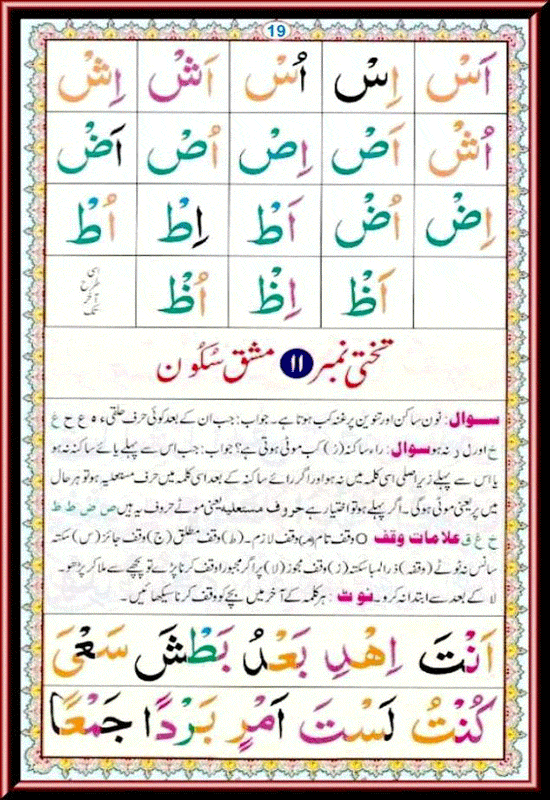 19
اَسْ اِسْ اُسْ اَشْ اِشْ
اُشْ اَصْ اِصْ اُصْ اَضْ
اِضْ اُضْ اَطْ اِطْ اُطْ
اَظْ اِظْ اُظْ اسی طرح آخر تک
تختی نمبر ۱۱ مشق سکون
سوال: نون ساکن اور تنوین پر غنہ کب ہوتا ہے۔ جواب: جب ان کے بعد کوئی حرف حلقی ء ہ ع ح غ
خ اور ل ر نہ ہو سوال: راء ساکنہ (رْ) کب موٹی ہوتی ہے؟ جواب: جب اس سے پہلے یائے ساکنہ نہ ہو
یا اس سے پہلے زیر اصلی اسی کلمہ میں نہ ہو اور اگر رائے ساکنہ کے بعد اسی کلمہ میں حرف مستعلیہ ہو تو ہر حال
میں پر یعنی موٹی ہوگی۔ اگر پہلے ہو تو اختیار ہے حروف مستعلیہ یعنی موٹے حروف یہ ہیں ص ض ط ظ
خ غ ق علامات وقف O وقف تام (م) وقف لازم۔ (ط) وقف مطلق (ج) وقف جائز (س) سکتہ
سانس نہ ٹوٹے (وقفہ) ذرا لمبا سکتہ (ز) وقف مجوز (لا) پر اگر مجبورا وقف کرنا پڑے تو پیچھے سے ملا کر پڑھو۔
لا کے بعد سے ابتدا نہ کرو۔ نوٹ: ہر کلمہ کے آخر میں بچے کو وقف کرنا سیکھائیں۔
اَنْتَ اِهْدِ بَعْدُ بَطْشَ سَعْیَ
كُنْتُ لَسْتَ اَمْرٍ بَرْدًا جَمْعًا